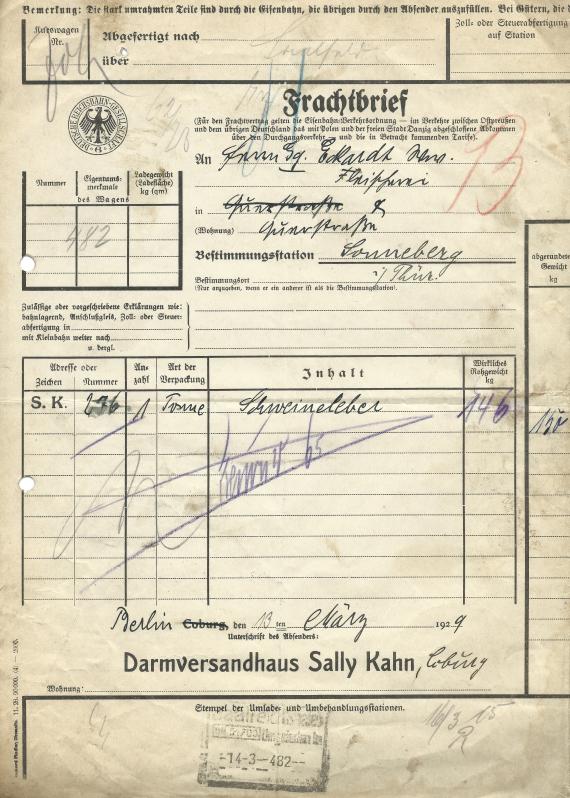 Bemerkung: Die stark umrahmten Teile sind durch die Eisenbahn, die übrigen durch den Absender auszufüllen. Bei Gütern, die
Kurswagen Nr.
Abgefertigt nach
über
Zoll- oder Steuerabfertigung
auf Station
Frachtbrief
DEUTSCHE REICHSBAHN-GESELLSCHAFT
(Für den Frachtvertrag gelten die Eisenbahn-Verkehrsordnung — im Verkehr zwischen Ostpreußen
und dem übrigen Deutschland das mit Polen und der freien Stadt Danzig abgeschlossene Abkommen
über den Durchgangsverkehr — und die in Betracht kommenden Tarife).
13
An Herrn Sg. Eckardt Wwe.
Fleischerei
in Querstraße
(Wohnung) Querstraße
Bestimmungsstation Sonneberg
i/Thür.
Bestimmungsort
(Nur anzugeben, wenn er ein anderer ist als die Bestimmungsstation).
Nummer
Eigentums-
merkmale
Ladegewicht
(Ladefläche)
kg (qm)
des Wagens
482
abgerundetes
Gewicht
kg
Zulässige oder vorgeschriebene Erklärungen wie:
bahnlagernd, Anschlußgleis, Zoll- oder Steuer-
abfertigung in
mit Kleinbahn weiter nach
u. dergl.
Adresse oder
Zeichen Nummer
An-
zahl
Art der
Verpackung
Inhalt
Wirkliches
Rohgewicht
kg
S. K. 236 1 Tonne Schweineleber 146
150
Berlin Coburg, den 13 ten März 1929
Unterschrift des Absenders:
Darmversandhaus Sally Kahn, Coburg
Wohnung:
Stempel der Umlade- und Umbehandlungsstationen.
-14-3—482--